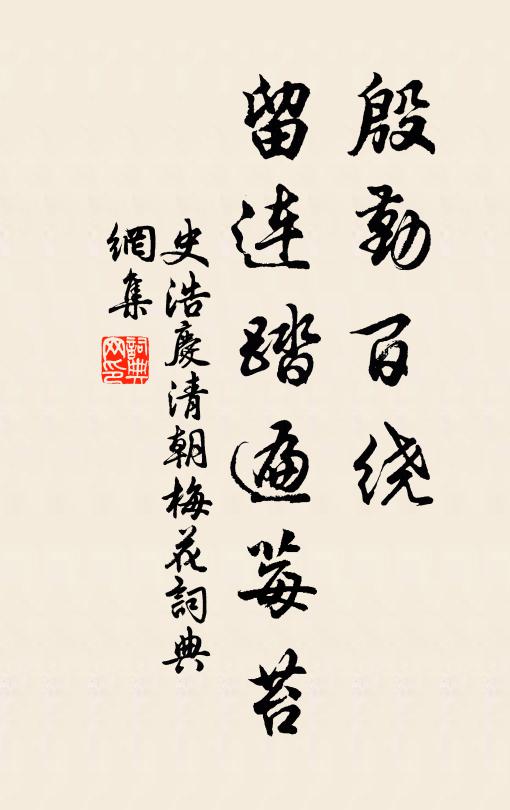 殷勤百绕
留连踏遍莓苔
史浩慶清朝梅花詞典
網集
詞典網印